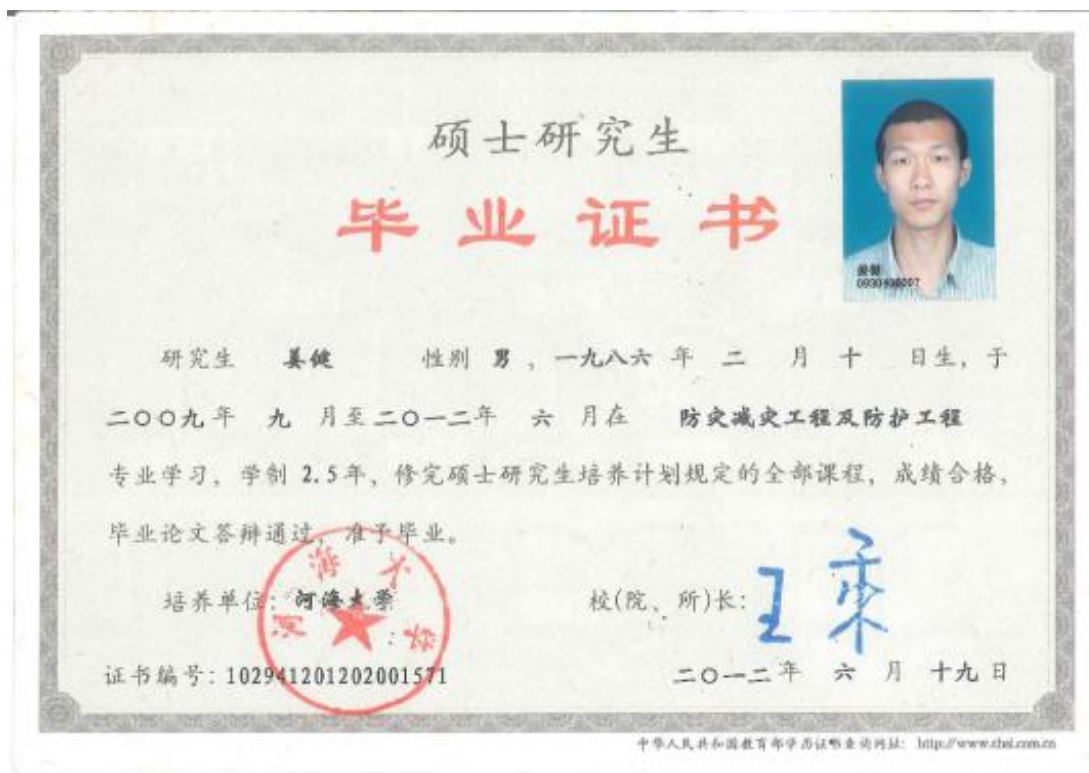 硕士研究生
毕业证书
姜健
0930408007
研究生 姜健 性别 男，一九八六 年 二 月 十 日生，于
二〇〇九年 九 月至二〇一二年 六 月在 防灾减灾工程及防护工程
专业学习，学制 2.5年，修完硕士研究生培养计划规定的全部课程，成绩合格，
毕业论文答辩通过，准予毕业。
河海大学
培养单位：河海大学 校(院、所)长：王乘
证书编号：102941201202001571 二〇一二年 六 月 十九日
中华人民共和国教育部学历证书查询网址： http://www.chsi.com.cn